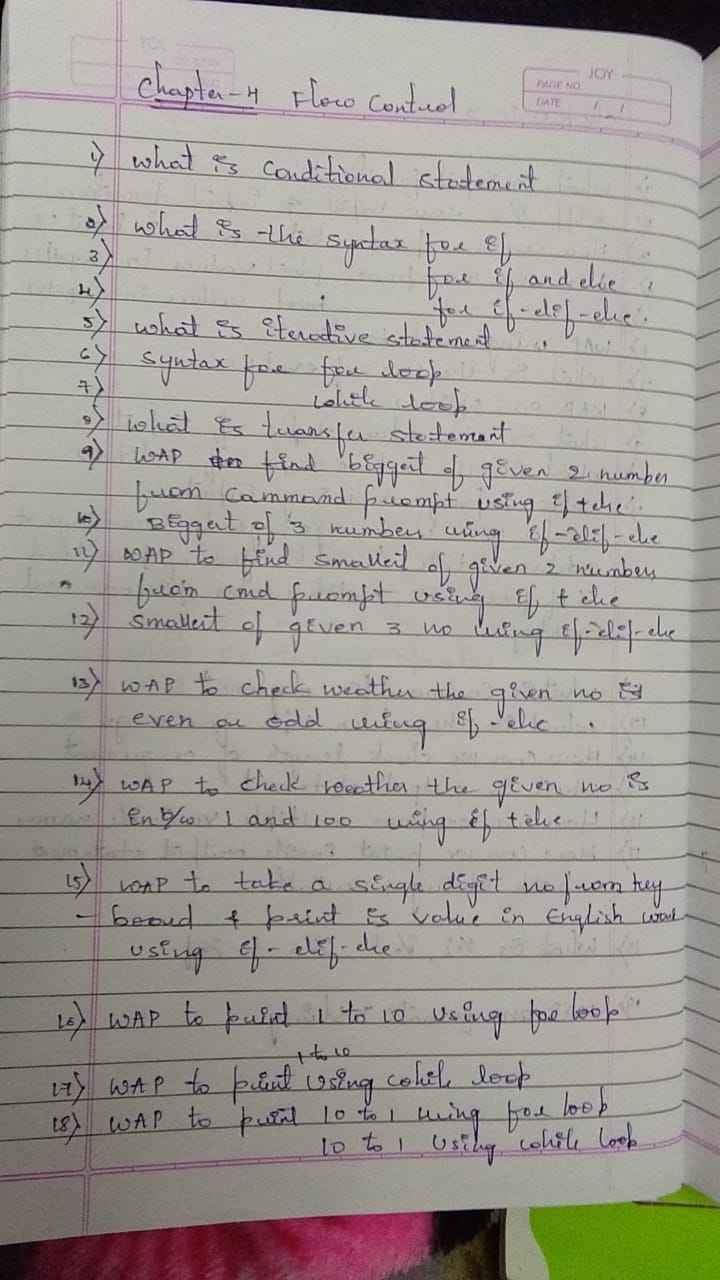 JOY
PAGE NO
DATE / /
Chapter-4 Flow Control
1) what is conditional statement
2) what is the syntax for if
3) for if and else
4) for if-elif-else.
5) what is iterative statement
6) syntax for for loop
7) while loop
8) what is transfer statement
9) WAP find biggest of given 2 number
from command prompt using if + else
10) Biggest of 3 numbers using if-elif-else
11) WAP to find smallest of given 2 numbers
from cmd prompt using if + else
12) smallest of given 3 no using if-elif-else
13) WAP to check weather the given no is
even or odd using if-else.
14) WAP to check weather the given no is
in b/w 1 and 100 using if + else
15) WAP to take a single digit no from key
- board & print is value in English word
using if - elif-else
16) WAP to print 1 to 10 using for loop
1 to 10
17) WAP to print using while loop
18) WAP to print 10 to 1 using for loop
10 to 1 using while loop